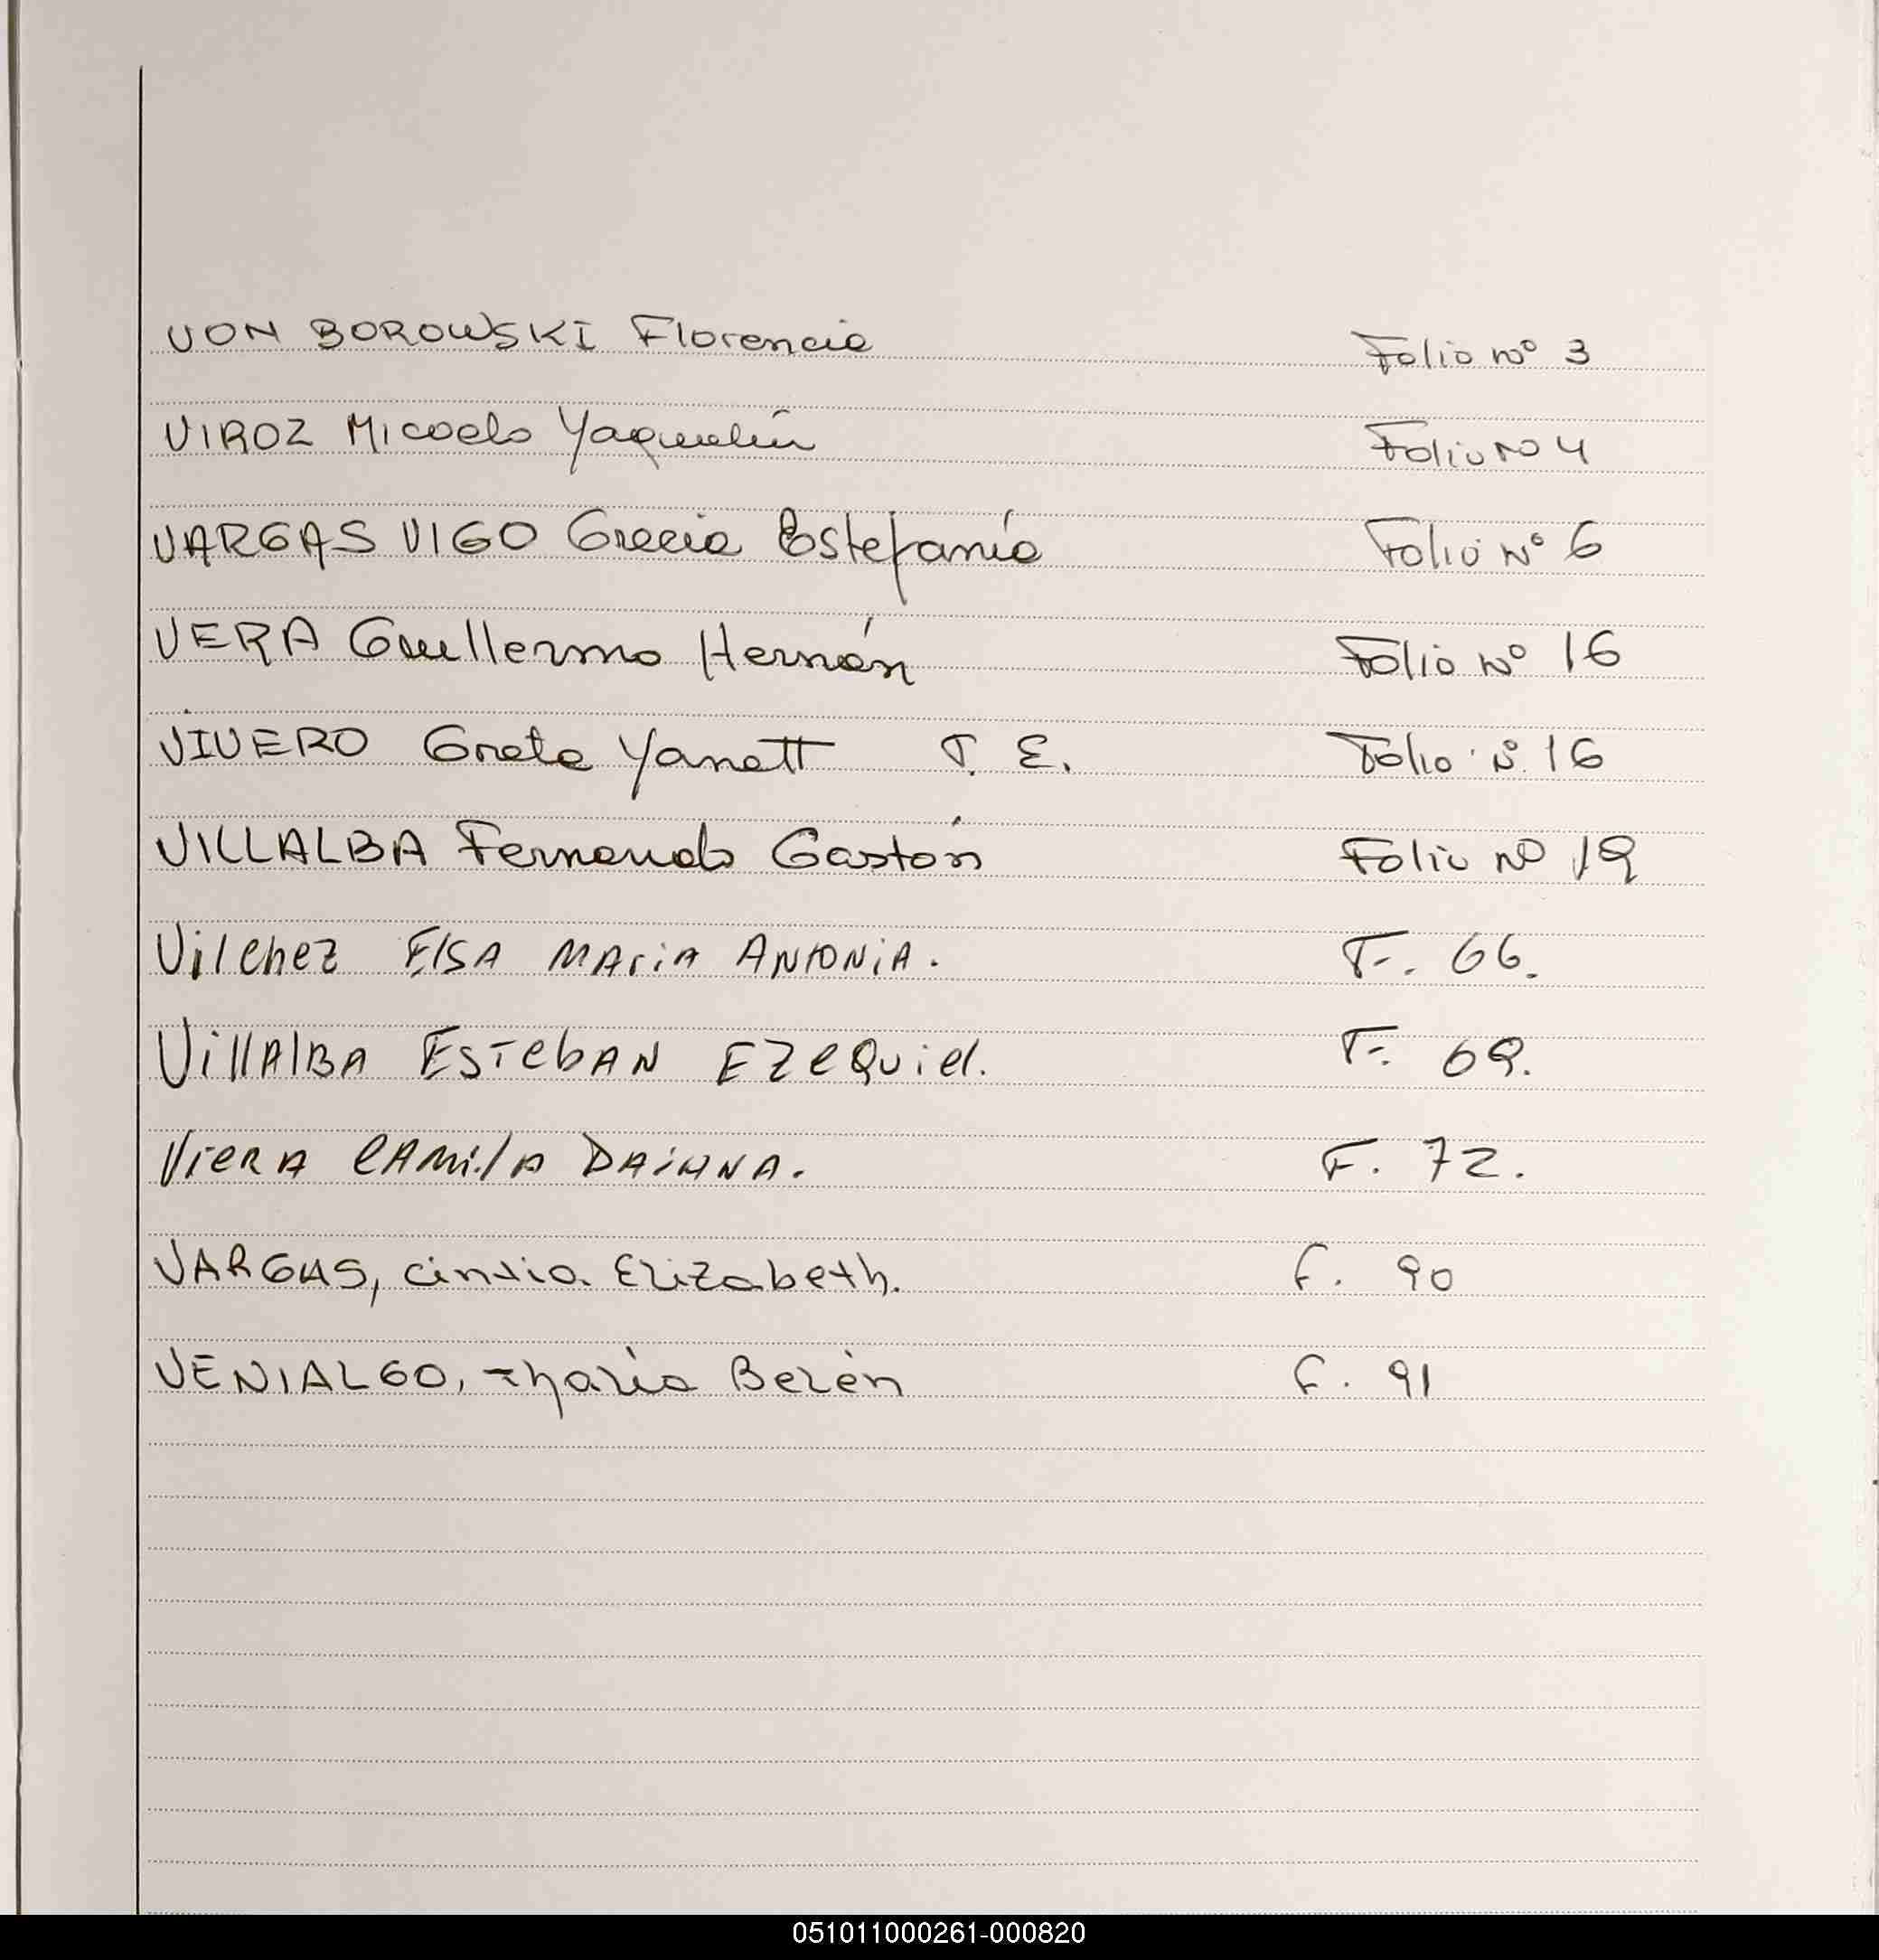 VON BOROWSKI Florencia Folio nº 3
VIROZ Micaela Yaquelin Folio Nº 4
VARGAS VIGO Grecia Estefanía Folio Nº 6
VERA Guillermo Hernán Folio Nº 16
VIVERO Greta Yanett T. E. Folio Nº 16
VILLALBA Fernando Gastón Folio Nº 19
Vilchez Elsa Maria Antonia. F. 66.
Villalba Esteban Ezequiel. F. 69.
Viera Camila Daiana. F. 72.
VARGAS, Cintia Elizabeth. F. 90
VENIALGO, Thalía Belén F. 91
051011000261-000820